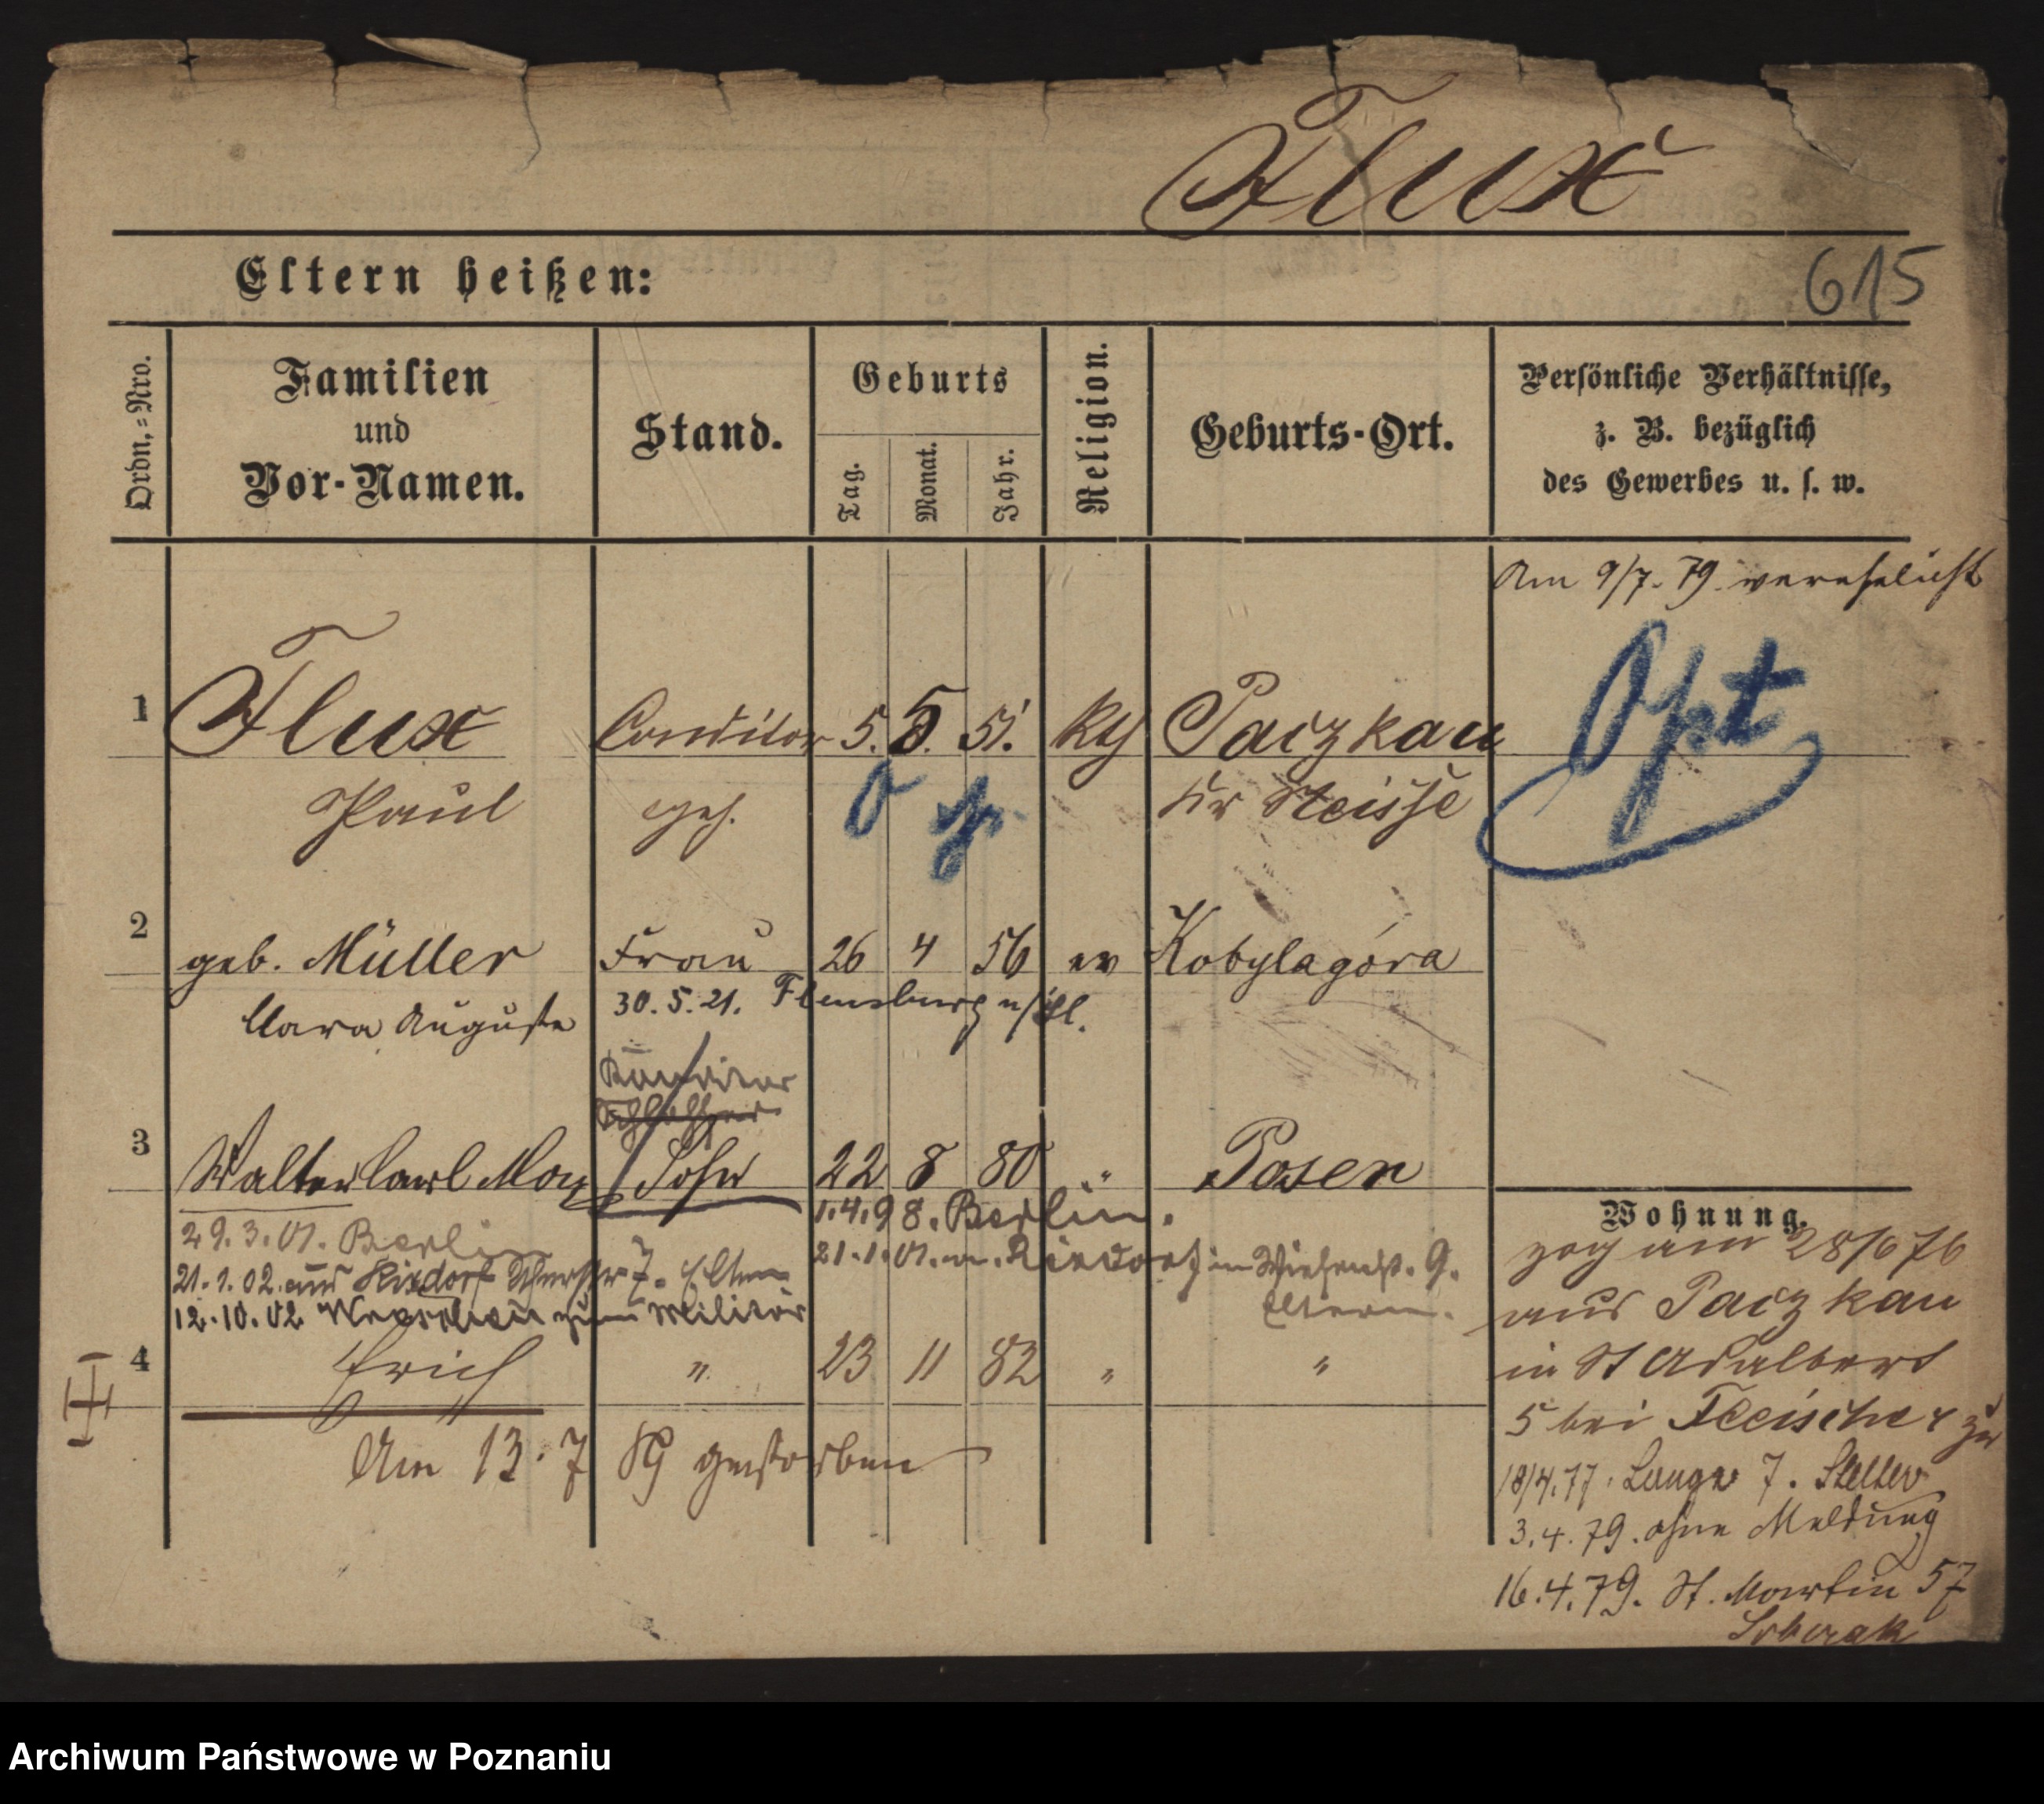 Flux
Eltern heißen:
615
Ordn.=Nro.
Familien
und
Vor-Namen.
Stand.
Geburts
Tag.
Monat.
Jahr.
Religion.
Geburts-Ort.
Persönliche Verhältnisse,
z. B. bezüglich
des Gewerbes u. s. w.
Am 9/7. 79. verehelicht
1 Flux Conditor 5. 5. 51. Kth Paczkau
Opt
Paul geh. Kr Neisse
2 geb. Müller Frau 26 4 56 ev Kobylagóra
Clara Auguste 30. 5. 21. Flensburg
Konditor
3 Walter Carl Max Sohn 22 8 80 " Posen
1.4.98. Berlin.
29. 3. 01. Berlin
21.1.01. n. Rixdorf in 9.
Eltern.
21.1.02. aus Rixdorf 7. Eltern
12.10.02 zum Militär
4 Erich " 23 11 82 " "
Am 13. 7 89 gestorben
Wohnung.
zog am 28/6 76
aus Paczkau
in St Adalbert
5 bei Fleischer zu
18/4.77. Lange 7. Steller
3.4.79. ohne Meldung
16.4.79. St. Martin 57
Archiwum Państwowe w Poznaniu